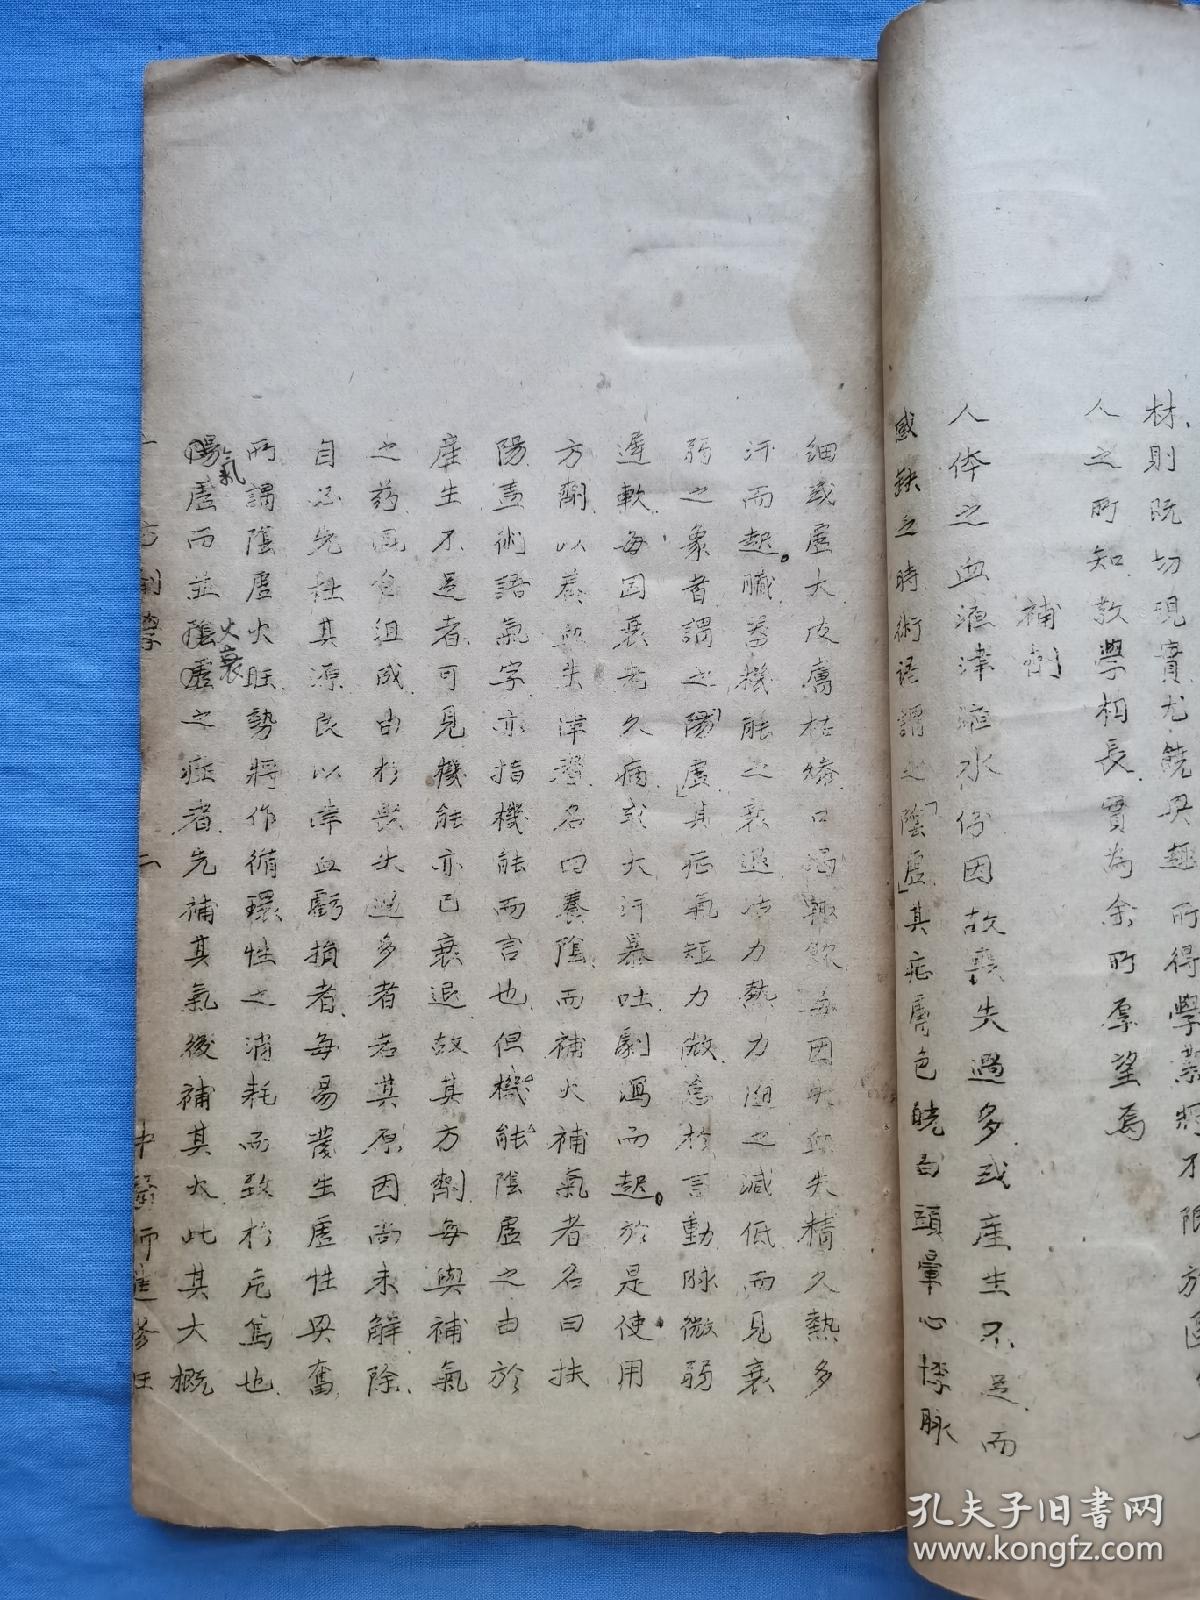 材則既切現實尤饒興趣所得學業將不限方區
人之所知敎學相長實為余所厚望焉
補劑
人体之血液津液水份因故喪失過多或産生不足而
感缺乏時術语謂之「陰虛」其症膚色皢白頭暈心悸脉
細或虛大皮膚枯瘠口渴輙飲每因失血失精久熱多
汗而起。臟器機能之衰退活力熱力迴之減低而見衰
弱之象者謂之「陽虛」其症氣短力微怠於言動脉微弱
遲軟每因衰老久病或大汗暴吐劇瀉而起。於是使用
方劑以養血生津者名曰養陰而補火補氣者名曰扶
陽盖術語氣字亦指機能而言也但機能陰虛之由於
産生不足者可見機能亦已衰退故其方劑每與補氣
之葯配合組成由於喪失過多者若其原因尚未解除
自必先杜其源良以津血虧損者每易發生虛性興奮
所謂陰虛火旺勢將作循環性之消耗而致於危篤也
陽虛而並陰虛之症者先補其氣後補其火此其大概
氣
火衰
方劑學 二 中醫師
孔夫子旧書网
www.kongfz.com